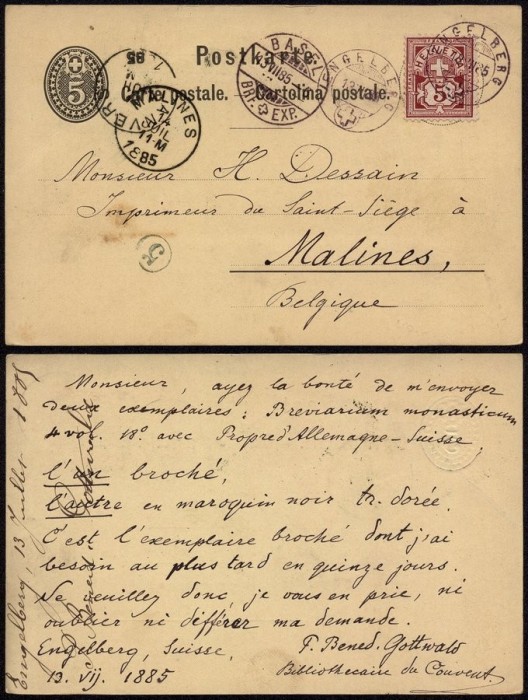 Postkarte.
Carte postale. Cartolina postale.
5
MALINES
11-M
1885
BASEL
BRF. EXP.
ENGELBERG
ENGELBERG
HELVETIA
5
Monsieur H. Dessain
Imprimeur du Saint-Siège à
Malines,
Belgique
5
Monsieur, ayez la bonté de m'envoyer
deux exemplaires: Breviarium monasticum
4 vol. 18º avec Propre d'Allemagne-Suisse,
l'un broché,
l'autre en maroquin noir tr. dorée.
C'est l'exemplaire broché dont j'ai
besoin au plus tard en quinze jours.
Ne veuillez donc, je vous en prie, ni
oublier ni différer ma demande.
Engelberg, Suisse,
13. vij. 1885
F. Bened. Gottwald
Bibliothecaire du Couvent.
Engelberg, 13 Juillet 1885